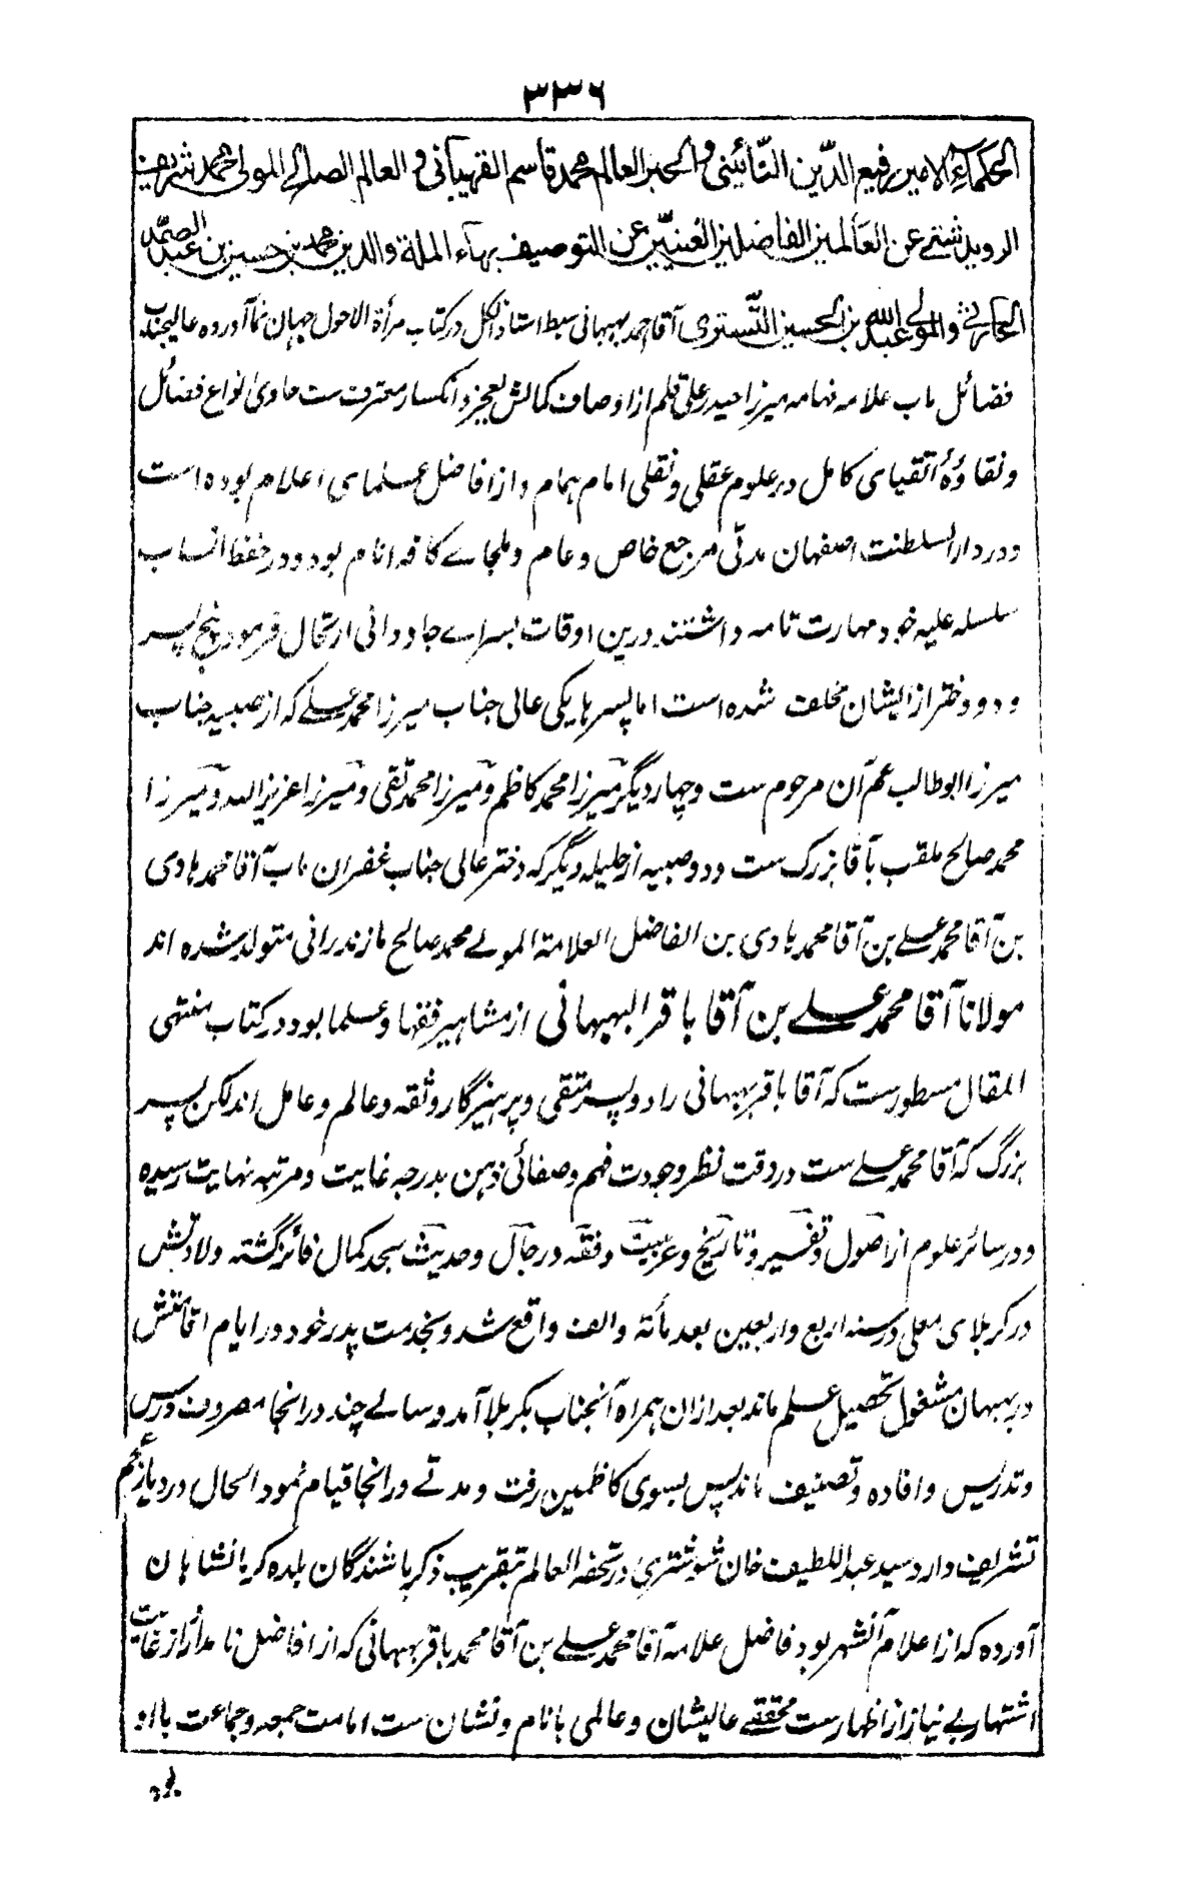 ۳۳۶
الحکماء الامیر رفیع الدّین النّائینی والحبر العالم محمد قاسم القهپائی والعالم الصالح المولی محمد شریف
الرویدشتی عن العالمین الفاضلین الغنیین عن التوصیف بهاء الملة والدین محمد بن حسین بن عبد الصمد
الحارثی والمولی عبد الله بن الحسین التستری آقا احمد بهبهانی سبط استاذ الکل در کتاب مرأة الاحول جهان نما آورده عالیجناب
فضائل مآب علامه فهامه میرزا حیدر علی قلم از اوصاف کمالش بعجز و انکسار معترفست حاوی انواع فضائل
ونقاوهٔ اتقیای کامل در علوم عقلی ونقلی امام همام واز افاضل علمای اعلام بوده است
ودر دار السلطنت اصفهان مدتی مرجع خاص وعام وملجاے کافه انام بود ودر حفظ انساب
سلسله علیه خود مهارت تامه داشتند درین اوقات بسراے جاودانی ارتحال فرمود پنج پسر
ودو دختر از ایشان مخلف شده است اما پسرها یکی عالی جناب میرزا محمد علے که از صبیه جناب
میرزا ابو طالب عم آن مرحوم ست وچهار دیگر میرزا محمد کاظم ومیرزا محمد تقی ومیرزا عزیز الله ومیرزا
محمد صالح ملقب بآقا بزرگ ست ودو صبیه از حلیله دیگر که دختر عالی جناب غفران مآب آقا محمد هادی
بن آقا محمد علے بن آقا محمد هادی بن الفاضل العلامة المولے محمد صالح مازندرانی متولد شده اند
مولانا آقا محمد علے بن آقا باقر البهبهانی از مشاهیر فقها وعلما بود در کتاب منتهی
المقال مسطورست که آقا باقر بهبهانی را دو پسر متقی وپرهیزگار وثقه وعالم وعامل اند لکن پسر
بزرگ که آقا محمد علے ست در دقت نظر وجودت فهم وصفائی ذهن بدرجه غایت ومرتبه نهایت رسیده
ودر سائر علوم از اصول وتفسیر وتاریخ وعربیت وفقه ورجال وحدیث بحد کمال فائز گشته ولادتش
در کربلای معلی در سنه اربع واربعین بعد مأئة والف واقع شد وبخدمت پدر خود در ایام اقامتش
در بهبهان مشغول تحصیل علم ماند بعد ازان همراه آنجناب بکربلا آمد وسالے چند در انجا مصروف درس
وتدریس وافاده وتصنیف ماند پس بسوی کاظمین رفت ومدتے در انجا قیام نمود الحال در دیار عجم
تشریف دارد سید عبد اللطیف خان شوشتری در تحفة العالم بتقریب ذکر باشندگان بلده کرمانشاهان
آورده که از اعلام آنشهر بود فاضل علامه آقا محمد علے بن آقا محمد باقر بهبهانی که از افاضل نامدار از غایت
اشتهار بے نیاز از اظهارست محققے عالیشان وعالمی با نام ونشان ست امامت جمعه وجماعت با او